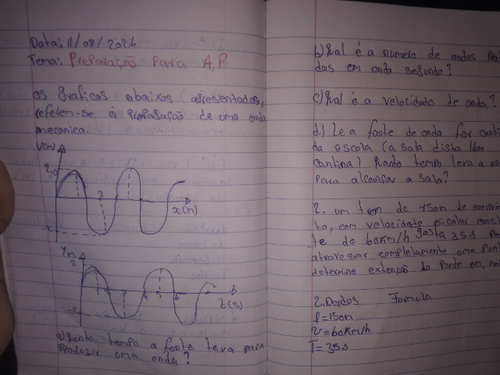 Data: 11/02/2026
Tema: Preparação para A.P
os gráficos abaixos apresentados,
referem-se á propagação de uma onda
mecanica.
3
x(m)
2
2
3
4
5
6
t(s)
a) Quanto tempo a fonte tera para
produzir uma onda?
b) Qual é a numero de ondas
das em cada segundo?
c) Qual é a velocidade de onda?
d) Se a fonte de onda for
da escola (a sala dista 10m
cantina) Quanto tempo tera a
para alcançar a sala?
2. um trem de 150m de
to, com velocidade escalar
te de 60km/h gasta 35s
atravessar completamente uma Pont
determine extenção da Ponte em,
2. Dados Formula
l = 150m
v = 60km/h
T = 35s